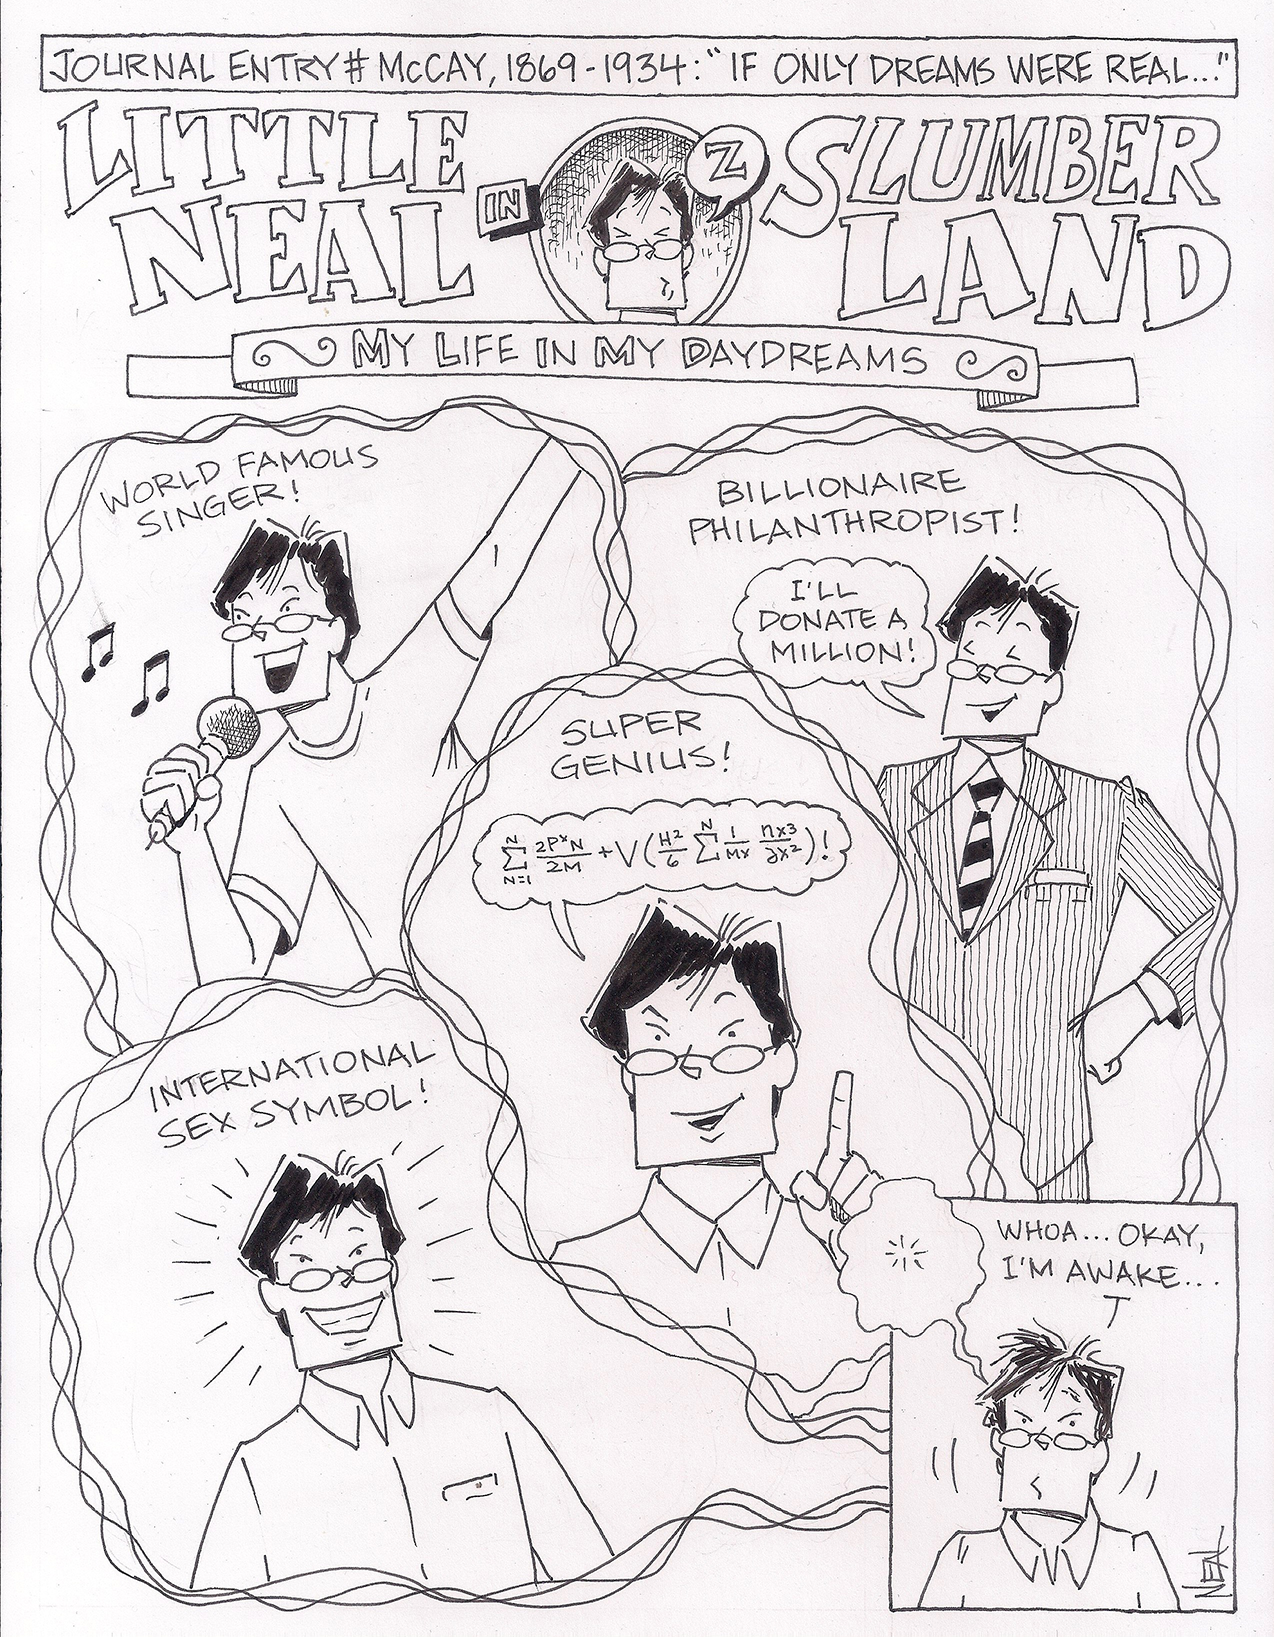 JOURNAL ENTRY # McCAY, 1869-1934: "IF ONLY DREAMS WERE REAL..."
LITTLE
NEAL
IN
Z
SLUMBER
LAND
MY LIFE IN MY DAYDREAMS
WORLD FAMOUS
SINGER!
BILLIONAIRE
PHILANTHROPIST!
I'LL
DONATE A
MILLION!
SUPER
GENIUS!
N∑N=1 2PˣN/2M + V(H²/6 N∑ 1/MX ΠX3/∂X²)!
INTERNATIONAL
SEX SYMBOL!
WHOA... OKAY,
I'M AWAKE...
NEAL